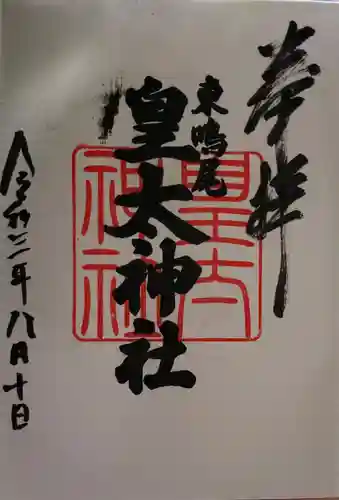 奉拝
東鳴尾
皇太神社
皇太
神社
令和二年八月十日